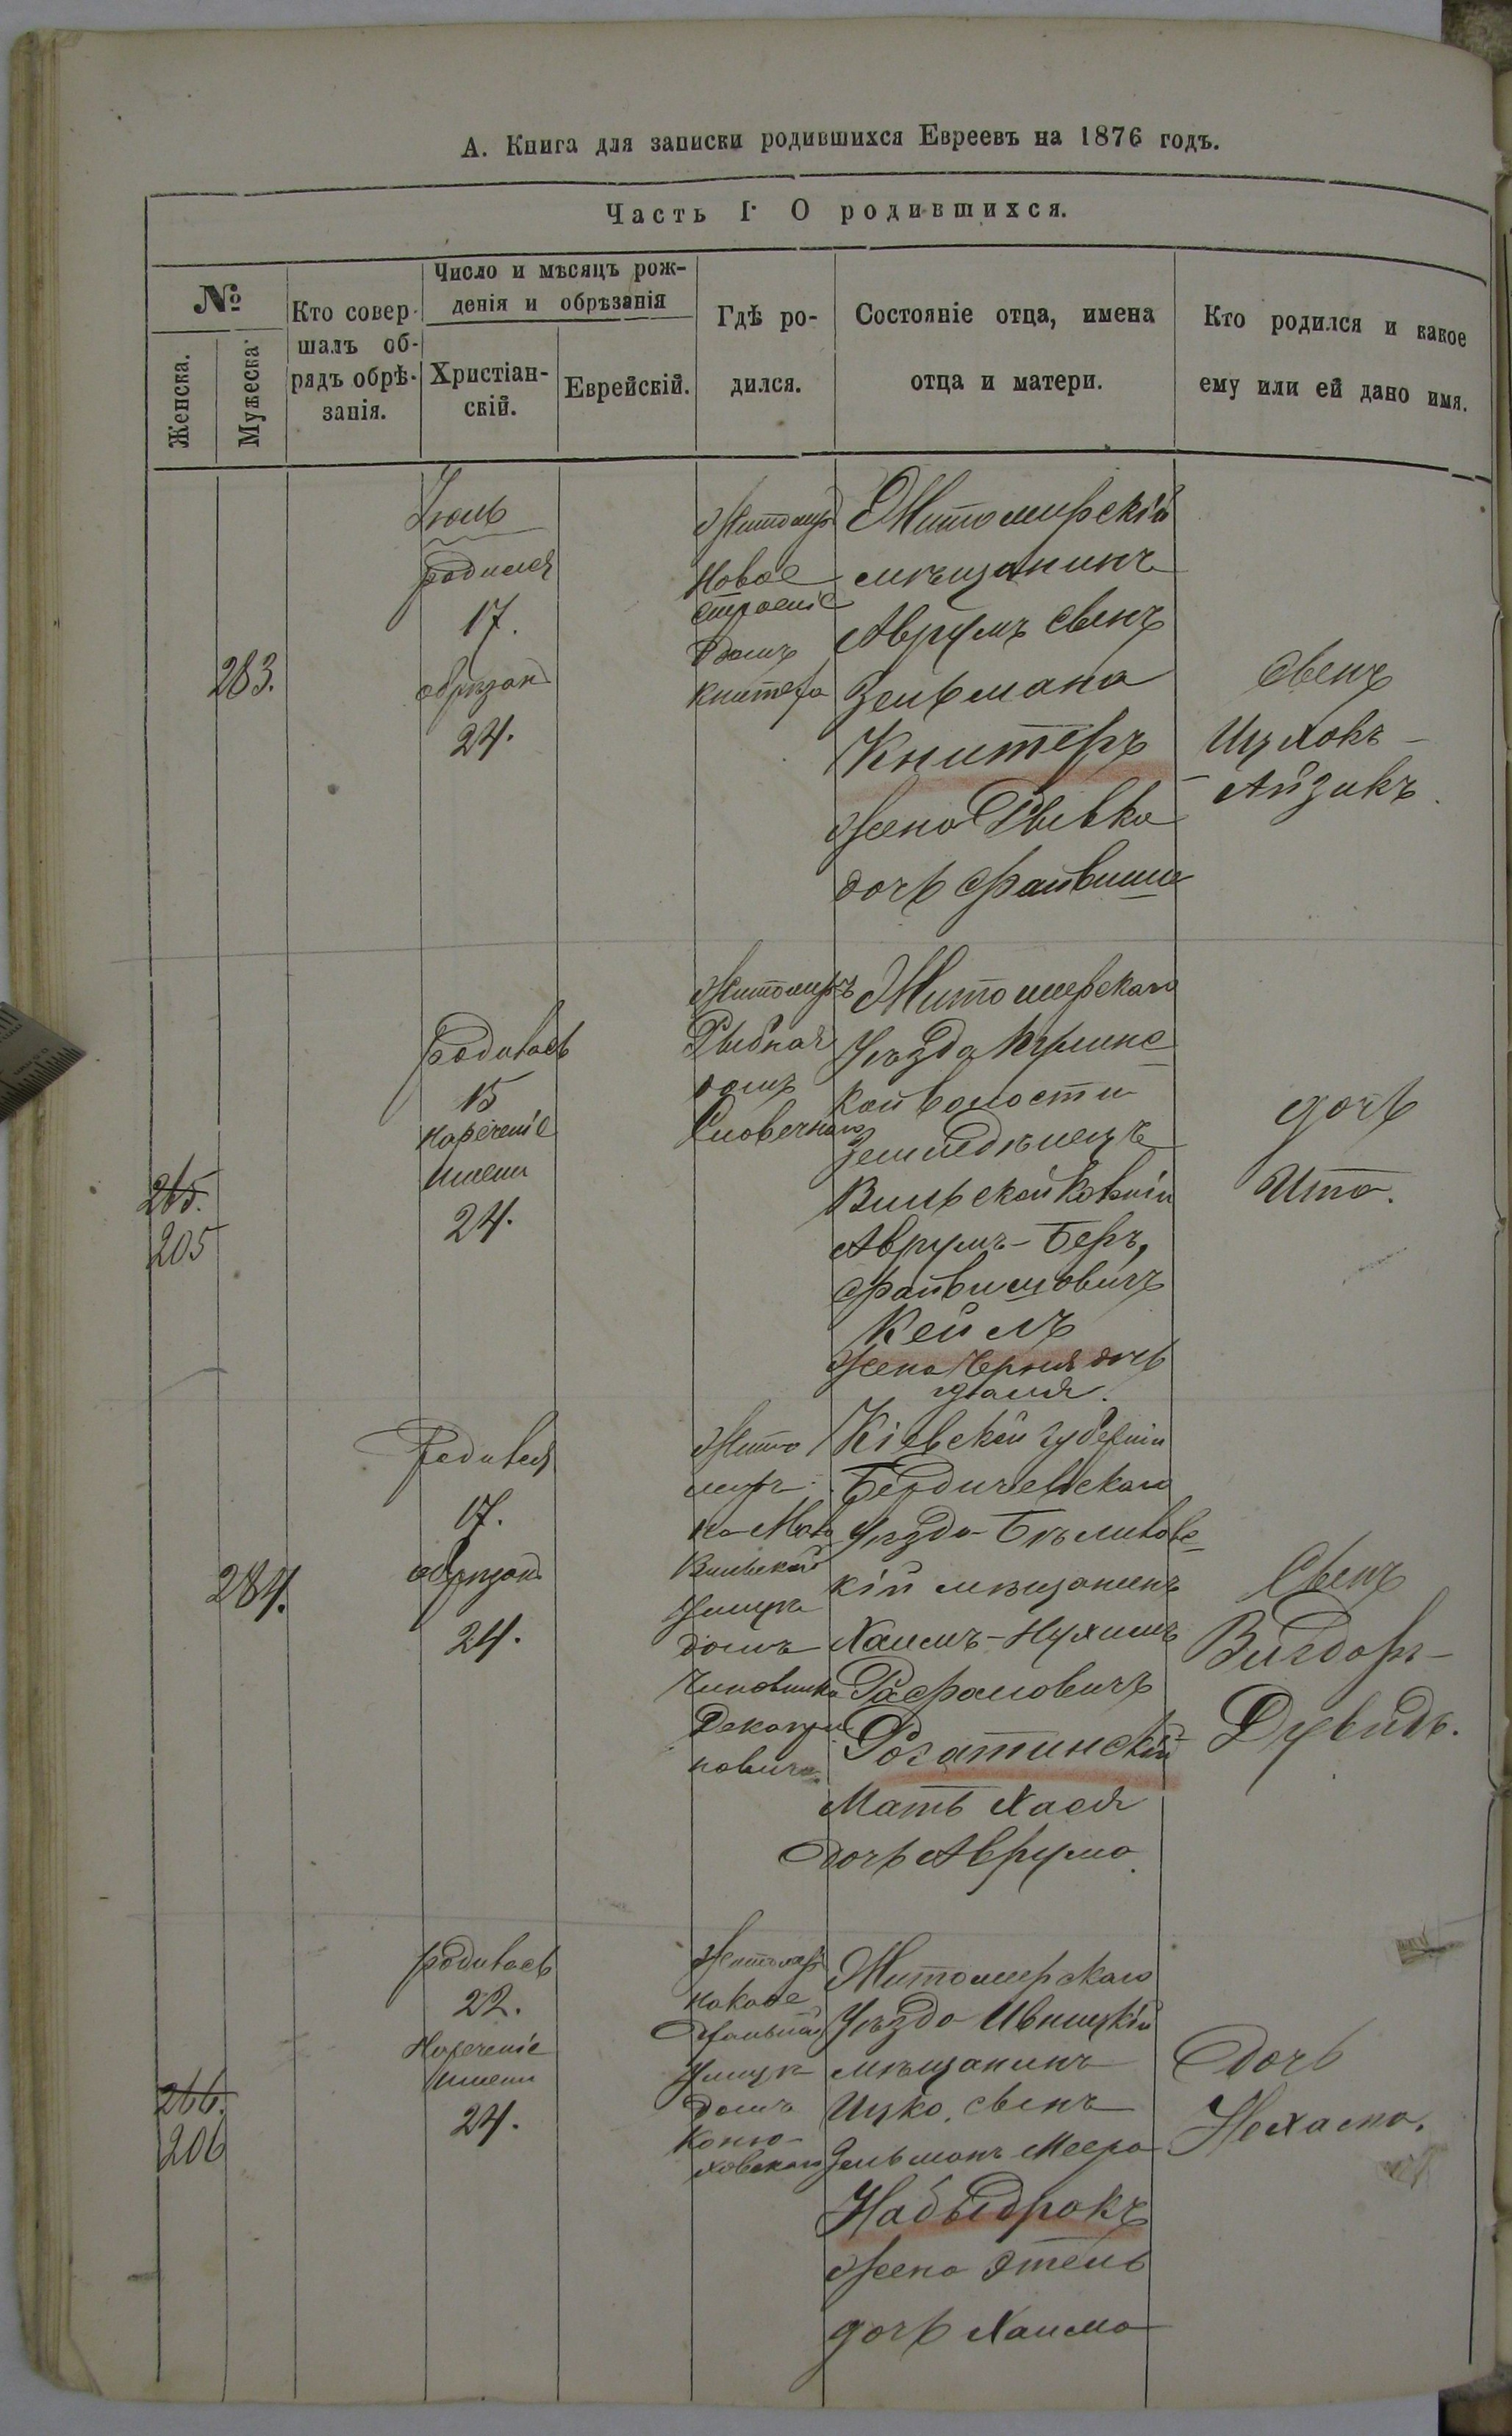 А. Книга для записки родившихся Евреевъ на 1876 годъ.
Часть I. О родившихся.
№
Женска.
Мужеска
Кто совер-
шалъ об-
рядъ обрѣ-
занія.
Число и мѣсяцъ рож-
денія и обрѣзанія
Христіан-
скій.
Еврейскій.
Гдѣ ро-
дился.
Состояніе отца, имена
отца и матери.
Кто родился и какое
ему или ей дано имя.
283.
Іюль
родился
17.
обрѣзан
24.
Житомир
Новое
строеніе
домъ
Книтера
Житомирскій
мѣщанинъ
Аврумъ сынъ
Зельмана
Книтеръ
жена Рывка
дочь Файвиша
сынъ
Ицхокъ-
-Айзикъ.
265.
205
родилась
15
Нареченіе
имени
24.
Житомиръ
Рыбная
домъ
Словечнаго
Житомирскаго
Уѣзда
кой волости
Земледѣлецъ
Вильской Колоніи
Аврумъ-Беръ,
Файвишовичъ
Кейлъ
жена Черня дочь
дочь
Ита.
284.
Родился
17.
обрѣзан
24.
Жито
миръ
на Мало
Вильской
Улицѣ
домъ
Чиновника
Кіевской губерніи
Бердичевскаго
Уѣзда Бѣлиловс-
кій мѣщанинъ
Хаимъ-Нухимъ
Рафаловичъ
Рогатинскій
Мать Хася
дочь Аврума.
Сынъ
Вигдоръ-
Дувидъ.
266.
206
родилась
22.
Нареченіе
имени
24.
Житомир
на
Улицѣ
домъ
Коню-
ховскаго
Житомирскаго
Уѣзда Ивницкій
мѣщанинъ
Ицко, сынъ
Зельманъ Меера
Набыдрокъ
жена Этель
дочь Хаима
Дочь
Нехама.